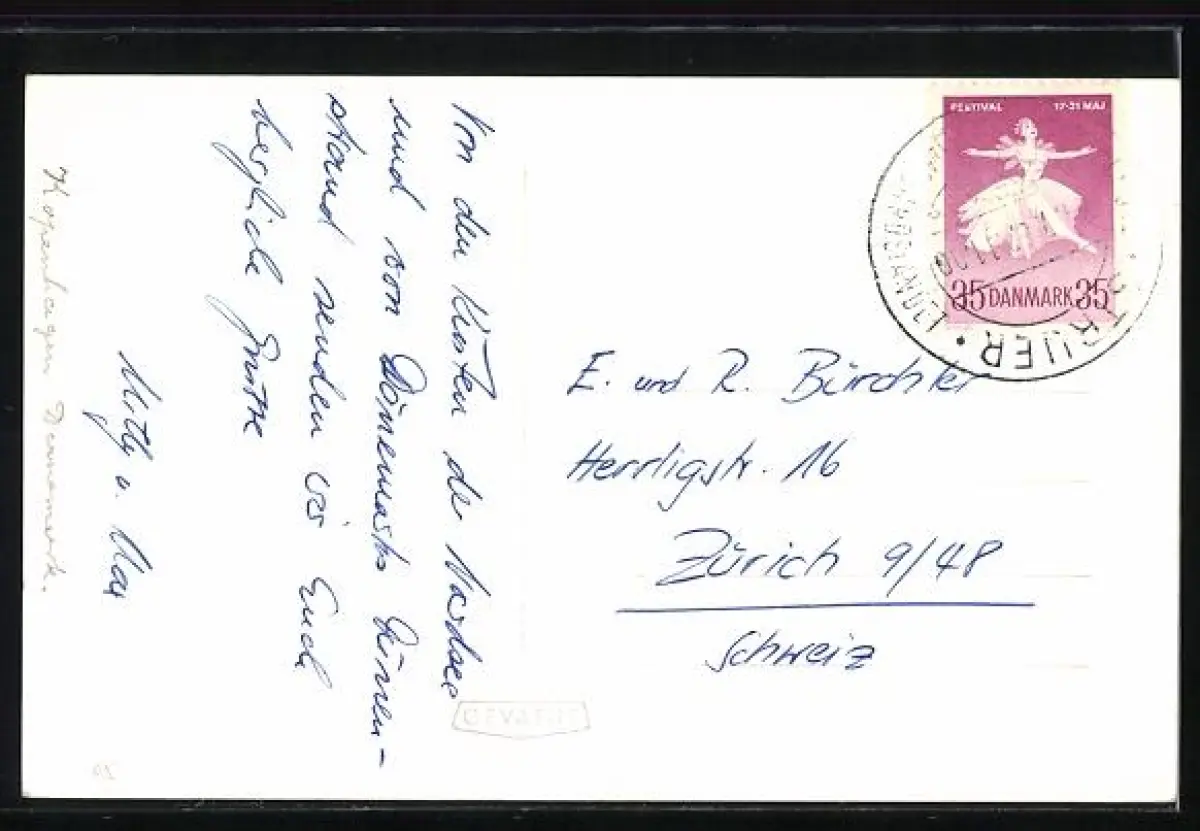 Von den Küsten der Nordsee
und von Dänemarks Dünen-
strand senden wir Euch
herzliche Grüsse
Milly u. Max
Kopenhagen Denemark.
FESTIVAL 17-31 MAJ
35 DANMARK 35
STRUER
E. und R. Bürchler
Herrligstr. 16
Zürich 9/48
Schweiz
GEVAERT